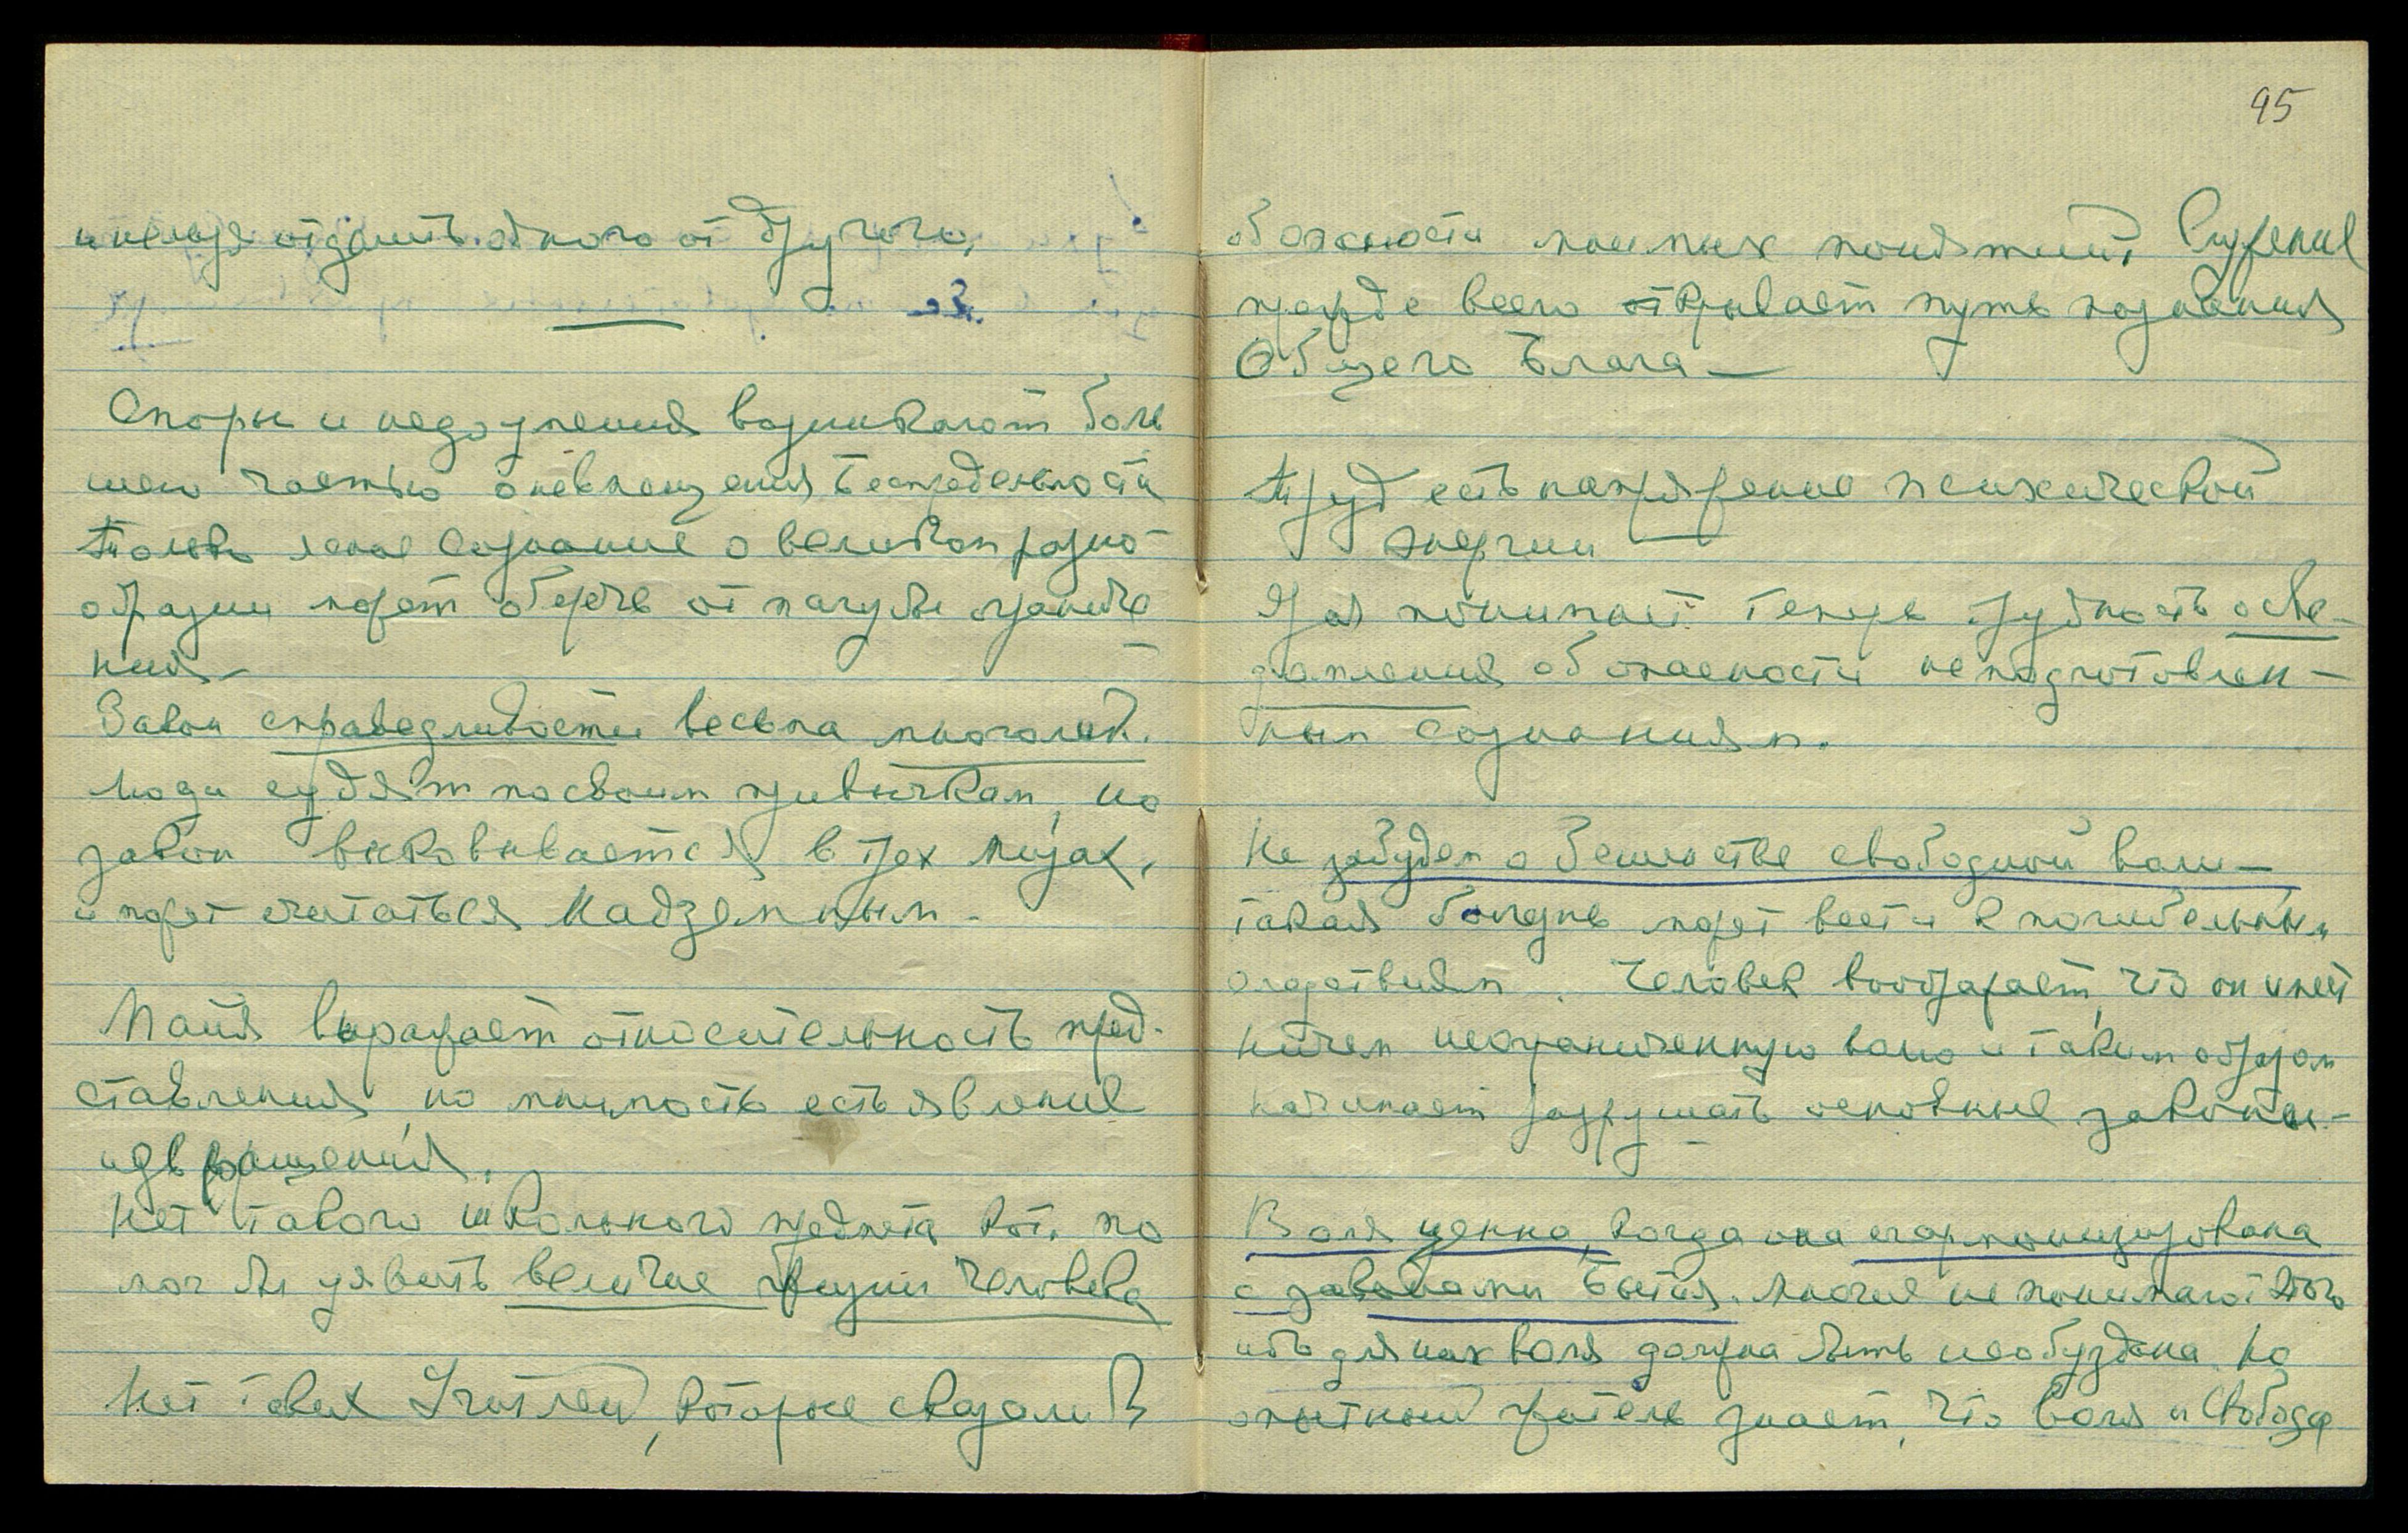 и нельзя отделить одного от другого,
Споры и недоумения возникают боль
шею частью от невмещения Беспредельности
Только ясное сознание о великом разно-
образии может сберечь от пагубы ограниче
ния —
Закон справедливости весьма многолик.
Люди судят по своим привычкам, но
закон выковывается в трех мирах,
и может считаться Надземным —
Майя выражает относительность пред-
ставления, но мнимость есть явление
извращения.
Нет такого школьного предмета кот. по
мог бы уявить величие жизни человека
Нет таких Учителей, которые сказали б
95
о божности мнимых понятий. Служение
прежде всего открывает путь познания
Общего Блага —
Труд есть напряжение психической
энергии —
Урал понимает теперь трудность осве-
домления об опасности неподготовлен-
ным сознаниям.
Не забудем о бешенстве свободной воли —
такая болезнь может вести к погибельным
следствиям. Человек воображает, что он имеет
ничем неограниченную волю и таким образом
начинает разрушать основные законы. —
Воля ценна, когда она сгармонизирована
с законами Бытия. Многие не понимают этого
ибо для них воля должна быть необуздана. Но
опытный житель знает, что воля и свобода